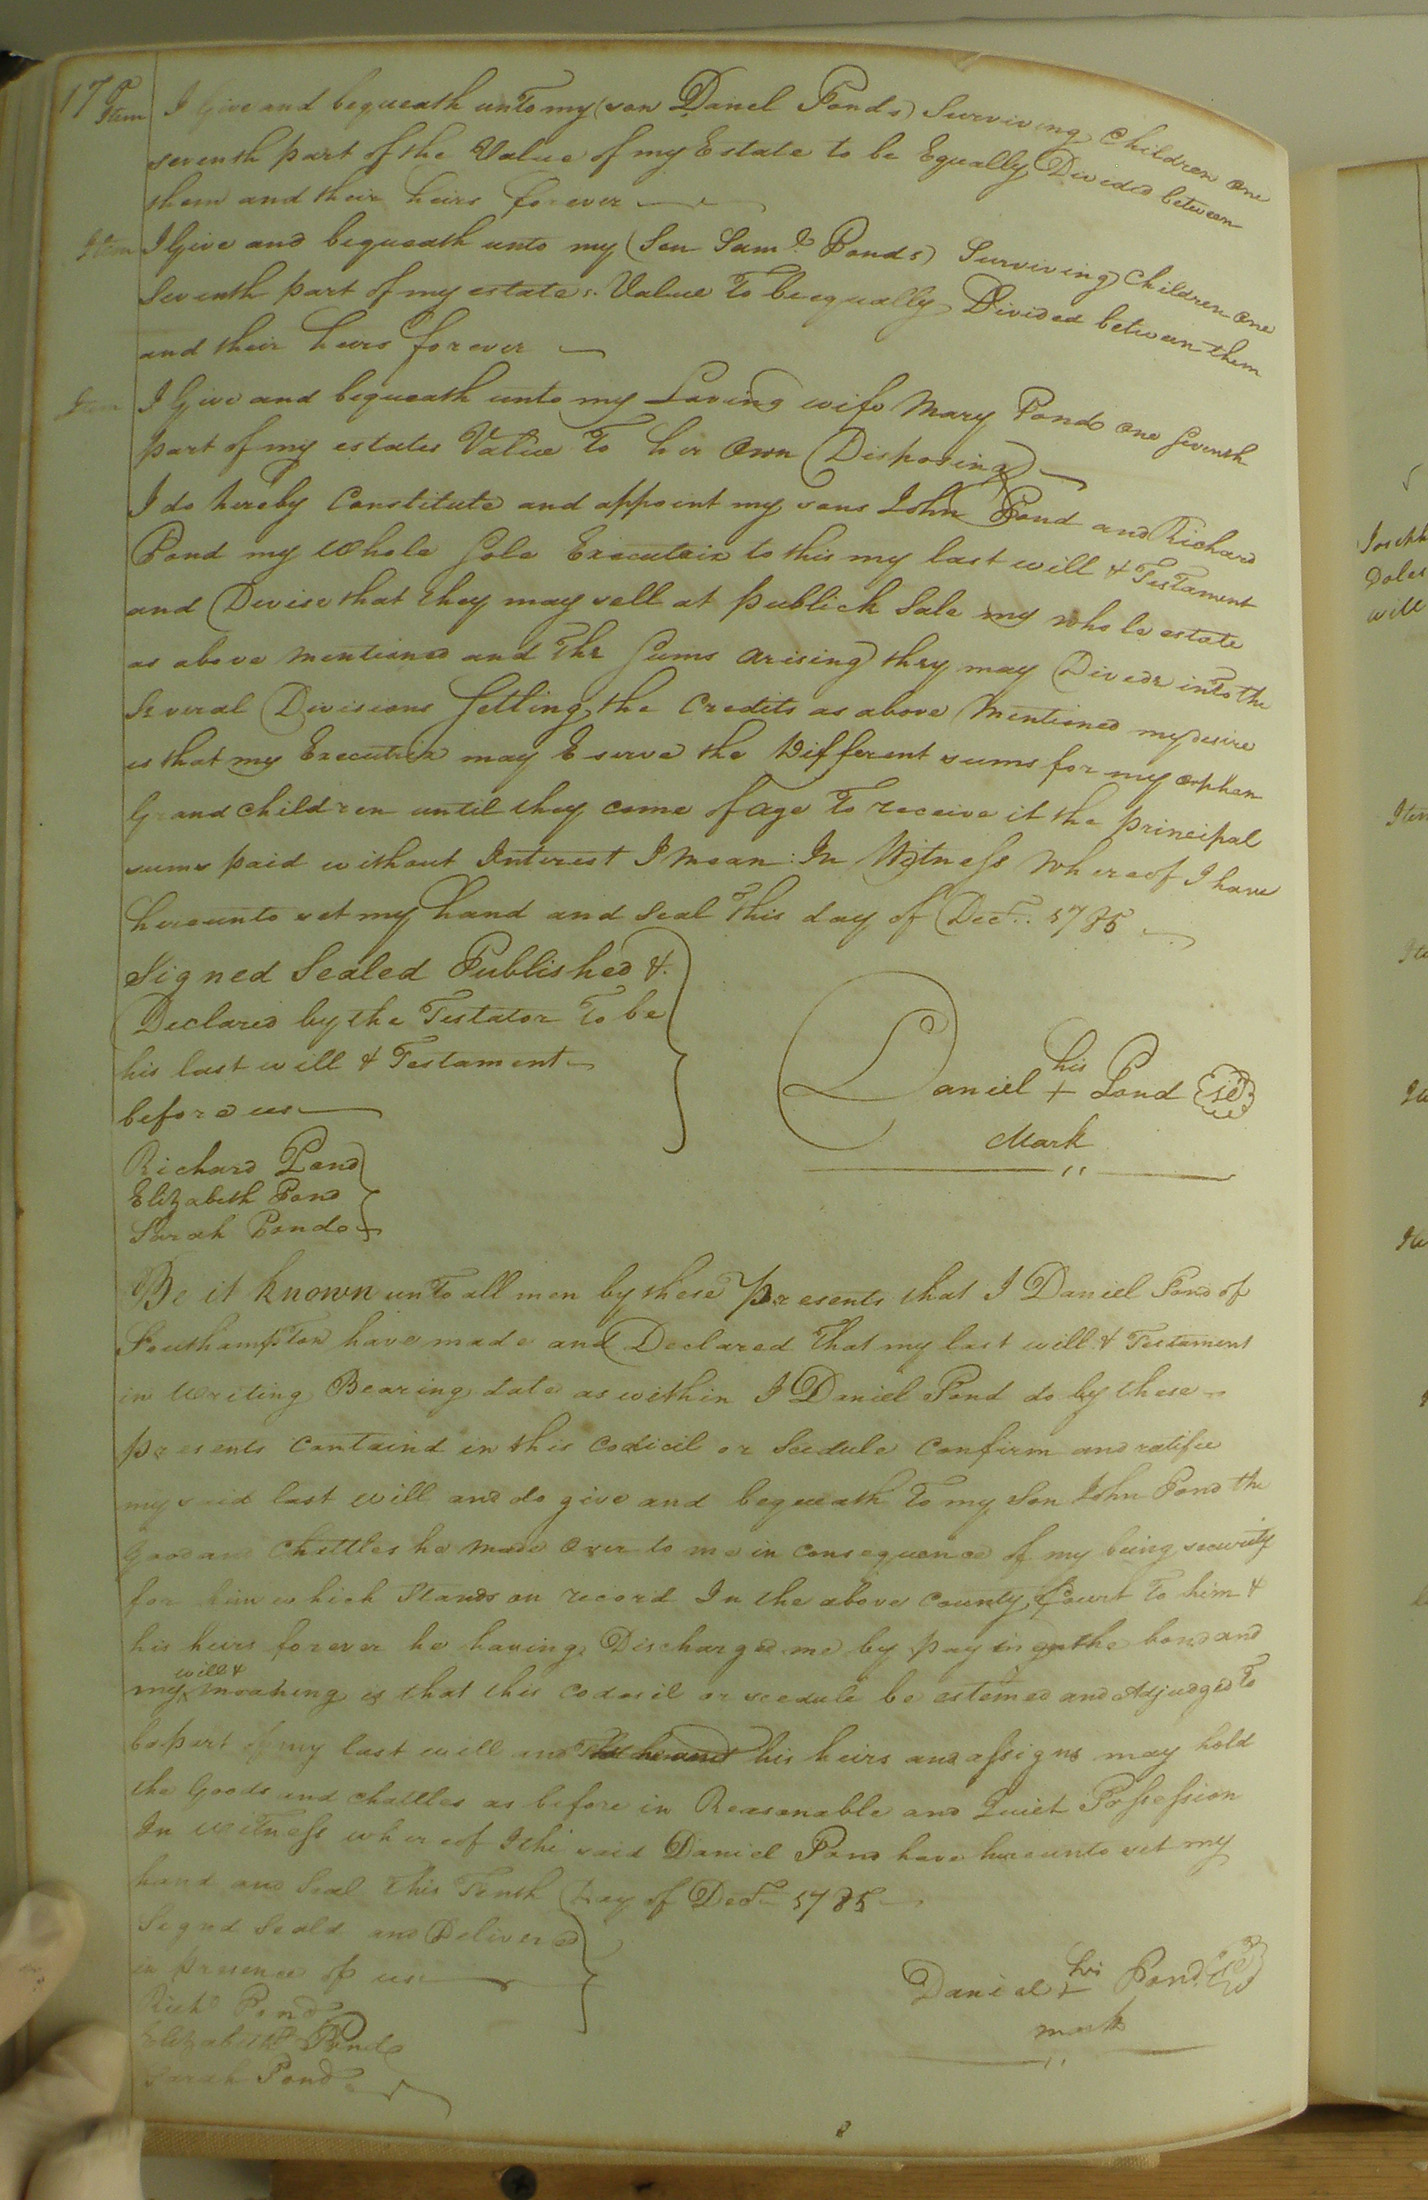 17
Item I Give and bequeath unto my (son Daniel Ponds) Surviving Children one
seventh part of the Value of my Estate to be Equally Divided between
them and their heirs forever
Item I Give and bequeath unto my (Son Saml Ponds) Surviving Children one
Seventh part of my estates Value To be equally Divided between them
and their heirs forever
Item I Give and bequeath unto my Loving wife Mary Pond one Seventh
part of my estates Value To her Own Disposing
I do hereby Constitute and appoint my sons John Pond and Richard
Pond my Whole Sole Executrix to this my last will & Testament
and Devise that they may sell at publick Sale my whole estate
as above mentioned and The Sums arising they may Divide into the
Several Divisions Setting the Credits as above Mentioned my desire
is that my Executrix may Eserve the Different sums for my orphan
Grandchildren until they come of age To receive it the principal
sums paid without Interest I mean: In Witness Whereof I have
hereunto set my hand and Seal This day of Decr. 1785
Signed Sealed Published &
Declared by the Testator To be
his last will & Testament
before us
his
Daniel + Pond
Mark
Richard Pond
Elizabeth Pond
Sarah Pond
Be it known unto all men by these presents that I Daniel Pond of
Southampton have made and Declared That my last will & Testament
in Writing Bearing date as within I Daniel Pond do by these
presents Containd in this Codicil or Scedule Confirm and ratifie
my said last will and do give and bequeath To my Son John Pond the
Good and Chettles he made Over to me in Consequence of my being security
for him which Stands on record In the above County Court To him &
his heirs forever he having Discharged me by paying the bond and
will &
my meaning is that this codicil or scedule be estemed and Adjudged To
be part of my last will and his heirs and assigns may hold
the Goods and chattles as before in Reasonable and Quiet Possession
In Witness whereof I the said Daniel Pond have hereunto set my
hand and Seal This Tenth Day of Decr 1785
Signd Seald and Delivered
in presence of us
his
Daniel + Pond
mark
Richd Pond
Elizabeth Pond
Sarah Pond
Joseph
will